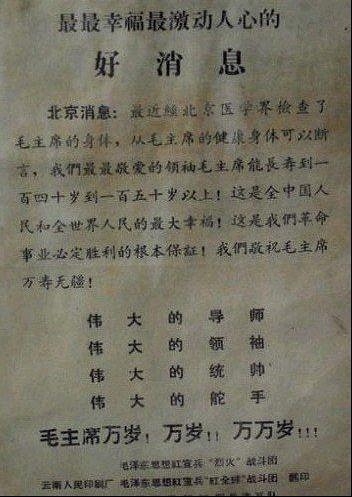 最最幸福最激动人心的
好消息
北京消息：最近經北京医学界檢查了
毛主席的身体，从毛主席的健康身体可以断
言，我們最最敬爱的領袖毛主席能長寿到一
百四十岁到一百五十岁以上！这是全中国人
民和全世界人民的最大幸福！这是我們革命
事业必定胜利的根本保証！我們敬祝毛主席
万寿无疆！
伟大的导师
伟大的领袖
伟大的统帅
伟大的舵手
毛主席万岁！万岁！！万万岁！！！
毛泽东思想紅宣兵“烈火”战斗团
云南人民印刷厂 毛泽东思想紅宣兵“紅全球”战斗团 翻印